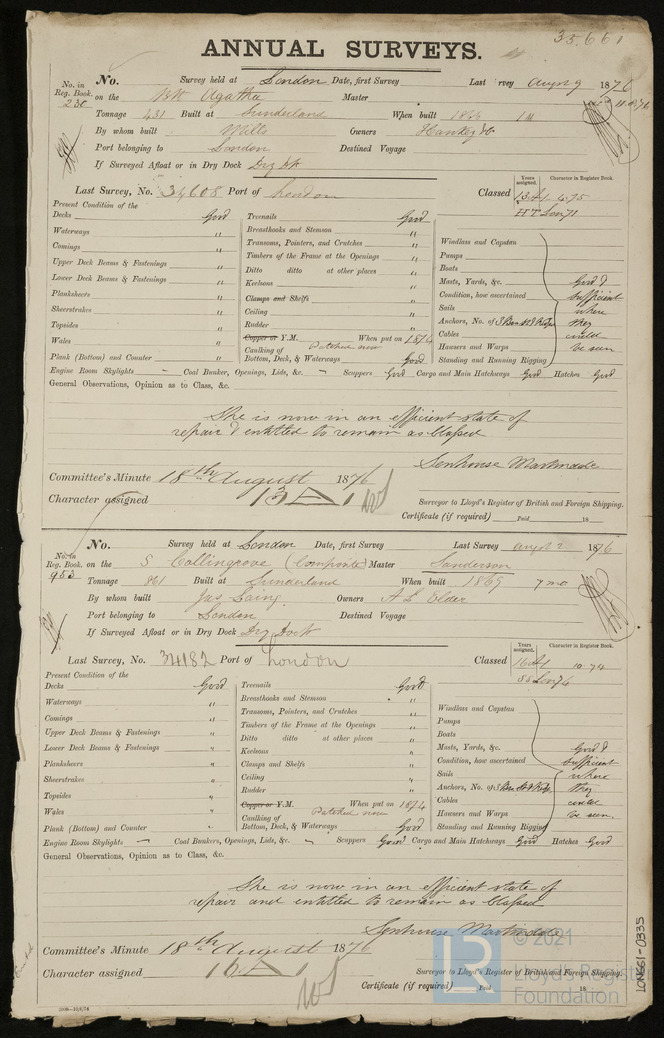 35661
ANNUAL SURVEYS.
No. Survey held at London Date, first Survey Last Survey Augt 9 1876
No. in Reg. Book. 230 on the Bk Agatha Master
Tonnage 431 Built at Sunderland When built
By whom built Mills Owners Hankey &Co
Port belonging to London Destined Voyage
If Surveyed Afloat or in Dry Dock Dry Dk
Last Survey, No. 34608 Port of London Classed
Years assigned. Character in Register Book.
13A1 4.75
HT Lon 71
Present Condition of the
Decks Good
Waterways "
Comings "
Upper Deck Beams & Fastenings "
Lower Deck Beams & Fastenings "
Planksheers "
Sheerstrakes "
Topsides "
Wales "
Plank (Bottom) and Counter "
Treenails Good
Breasthooks and Stemson "
Transoms, Pointers, and Crutches "
Timbers of the Frame at the Openings "
Ditto ditto at other places "
Keelsons "
Clamps and Shelfs "
Ceiling "
Rudder "
Copper or Y.M. When put on 1874
Patched now
Caulking of Bottom, Deck, & Waterways Good
Windlass and Capstan
Pumps
Boats
Masts, Yards, &c. Good &
Condition, how ascertained sufficient
Sails where
Anchors, No. of they
Cables could
Hawsers and Warps be seen
Standing and Running Rigging
Engine Room Skylights — Coal Bunkers, Openings, Lids, &c. — Scuppers Good Cargo and Main Hatchways Good Hatches Good
General Observations, Opinion as to Class, &c.
She is now in an efficient state of
repair & entitled to remain as Classed
Senhouse Martindale
Committee's Minute 18th August 1876
Character assigned 13 A 1
Surveyor to Lloyd's Register of British and Foreign Shipping.
Certificate (if required) Paid 18
No. Survey held at London Date, first Survey Last Survey Augt 2 1876
No. in Reg. Book. 953 on the S Collingrove (Composite) Master Sanderson
Tonnage 861 Built at Sunderland When built 1869 7 mo
By whom built Jas Laing Owners A L Elder
Port belonging to London Destined Voyage
If Surveyed Afloat or in Dry Dock Dry Dock
Last Survey, No. 34182 Port of London Classed
Years assigned. Character in Register Book.
16A1 10.74
SS Lon 74
Present Condition of the
Decks Good
Waterways "
Comings "
Upper Deck Beams & Fastenings "
Lower Deck Beams & Fastenings "
Planksheers "
Sheerstrakes "
Topsides "
Wales "
Plank (Bottom) and Counter "
Treenails Good
Breasthooks and Stemson "
Transoms, Pointers, and Crutches "
Timbers of the Frame at the Openings "
Ditto ditto at other places "
Keelsons "
Clamps and Shelfs "
Ceiling "
Rudder "
Copper or Y.M. When put on 1874
Patched now
Caulking of Bottom, Deck, & Waterways Good
Windlass and Capstan
Pumps
Boats
Masts, Yards, &c. Good &
Condition, how ascertained sufficient
Sails where
Anchors, No. of they
Cables could
Hawsers and Warps be seen.
Standing and Running Rigging
Engine Room Skylights — Coal Bunkers, Openings, Lids, &c. — Scuppers Good Cargo and Main Hatchways Good Hatches Good
General Observations, Opinion as to Class, &c.
She is now in an efficient state of
repair and entitled to remain as Classed
Senhouse Martindale
Committee's Minute 18th August 1876
Character assigned 16 A 1
Surveyor to Lloyd's Register of British and Foreign Shipping.
Certificate (if required) Paid 18
LR © 2021
Lloyd's Register
Foundation
LON661-0335